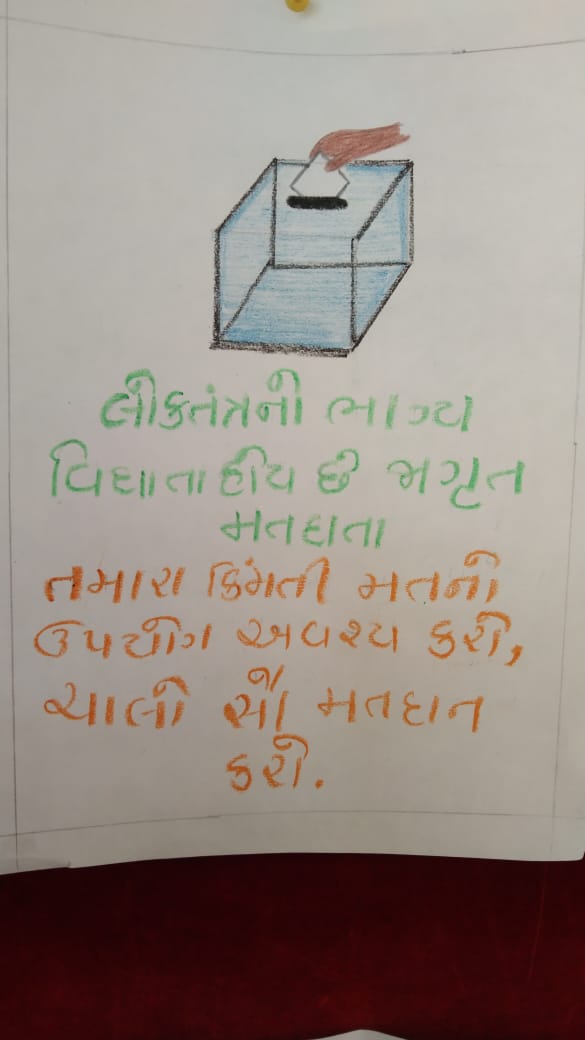 લોકતંત્રનો ભાગ્ય
વિધાતા હોય છે જાગૃત
મતદાતા
તમારા કિંમતી મતનો
ઉપયોગ અવશ્ય કરો,
ચાલો સૌ મતદાન
કરો.